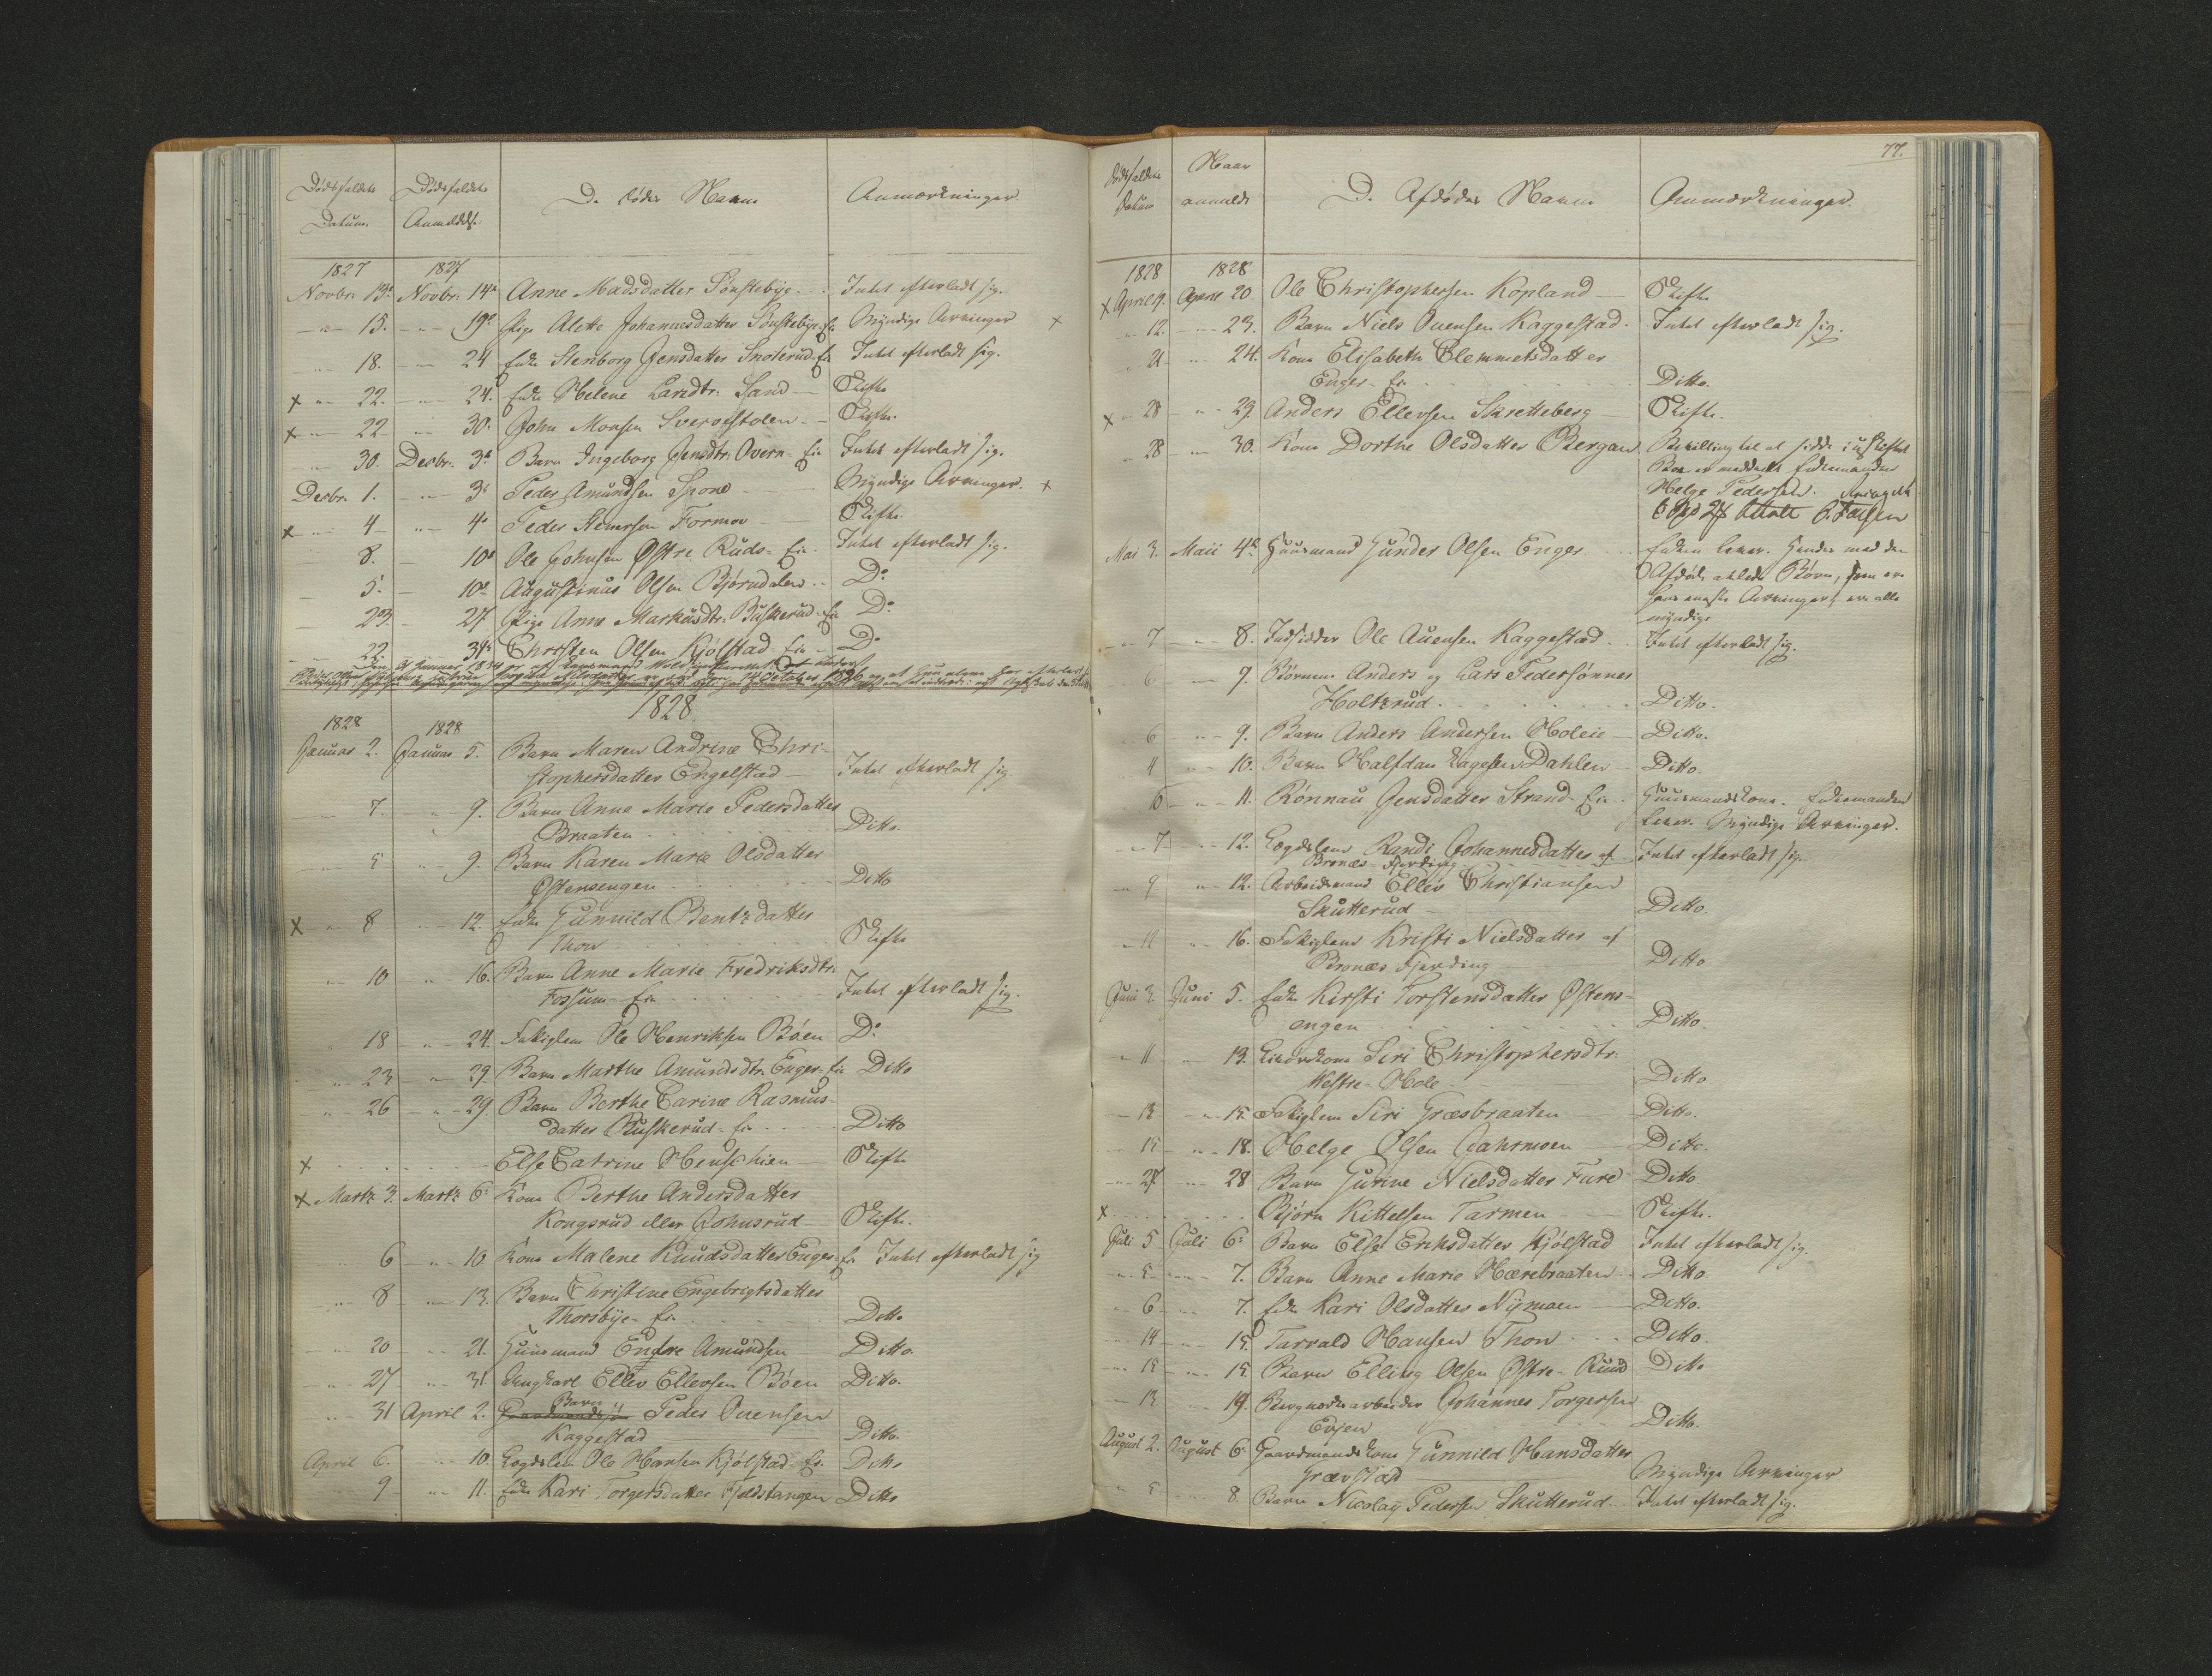 Dødsfaldets Datum. Dødsfaldets Anmeldelse. D. Dødes Navn Anmærkninger.
1827 1827
Novbr: 13de Novbr: 14de Anne Madsdatter Sønstebye Intet efterladt sig.
15. 19de Pige Alette Johannesdatter Sønstebye-Eie Myndige Arvinger
18. 24 Enke Stenborg Jensdatter Snoterud-Eie Intet efterladt sig.
x 22. 24. Enke Helene Larsdtr. Sand Skifte
x 22 30. John Monsen Sverofstolen Skifte.
30. Decbr. 3de Barn Ingeborg Jensdtr: Overn-Eie Intet efterladt sig.
Decbr. 1. 3de Peder Amundsen Spone Myndige Arvinger. x
x 4 4de Peder Formoe Skifte
8. 10de Ole Johnsen Østre Ruds-Eie Intet efterladt sig.
5. 10de Augustinus Olsen Bjørndalen Do
23. 27 Pige Anne Markusdtr. Buskerud-Eie Do
22. 31te Christen Olsen Kjølstad-Eie Do
1828
1828 1828
Januar 2. Januar 5. Barn Maren Andrine Chri-
stophersdatter Engelstad Intet efterladt sig.
7. 9. Barn Anna Marie Pedersdatter
Braaten Ditto.
5 9. Barn Karen Marie Olsdatter
Østensengen Ditto
x 8 12. Enke Gunnild Bentsdatter
Thon Skifte
10 16. Barn Anne Marie Fredriksdtr.
Fossum-Eie Intet efterladt sig.
18 24. Fattiglem Ole Henriksen Bøen Do
23 29. Barn Marthe Amundsdtr. Enger-Eie Ditto
26 29. Barn Berthe Carine Rasmus-
datter Buskerud-Eie Ditto
x Else Catrine Skifte
x Martz 3. Martz 6. Kone Berthe Andersdatter
Kongsrud eller Johnsrud Skifte.
6 10. Kone Malene Knudsdatter Enger-Eie Intet efterladt sig
8 13. Barn Christine Engebrigtsdatter
Thorsbye-Eie Ditto
20 21. Huusmand Endre Amundsen Ditto.
27 31. Ungkarl Ellev Ellevsen Bøen Ditto.
31 April 2. Barn Peder Ovensen
Kaggestad Ditto.
April 6. 10. Lægdslem Ole Hansen Kjølstad-Eie Ditto
9 11. Enke Kari Torgersdatter Fjeldstangen Ditto
77.
Dødsfaldets Datum Naar anmeldt D. Afdødes Navn Anmærkninger.
1828 1828
x April 19. April 20. Ole Christophersen Kopland Skifte
12. 23. Barn Niels Ovensen Kaggestad. Intet efterladt sig.
21 24. Kone Elisabeth Clemmetsdatter
Enger-Eie Ditto.
x 28 29. Anders Ellevsen Skretteberg Skifte.
28 30. Kone Dorthe Olsdatter Bergan Bevilling til at sidde i uskiftet
Boe er meddeelt Enkemanden
Helge Pedersen.
Mai 3. Maii 4de Huusmand Gunder Olsen Enger Enken lever. Hendes med den
Afdøde avlede Børn, som ere
hans eneste Arvinger, ere alle
myndige
7 8. Indsidder Ole Ovensen Kaggestad Intet efterladt sig.
6 9. Børnene Anders og Lars Pedersønner
Holtsrud Ditto.
6 9. Barn Anders Andersen Moleie Ditto.
4 10. Barn Halfdan Aagesen Dahlen Ditto.
6 11. Rønnau Jensdatter Strand-Eie Huusmandskone. Enkemanden
lever. Myndige Arvinger.
7 12. Lægdslem Randi Johannesdatter af Intet efterladt sig.
Bronæs Fjerding
9 12. Arbeidsmand Ellev Christiansen
Skutterud Ditto.
11 16. Fattiglem Kristi Nielsdatter af
Bronæs Fjerding Ditto
Juni 3. Juni 5. Enke Kirsti Torstensdatter Østens-
engen Ditto.
11 13. Siri Christophersdtr.
Westre-Hole Ditto
13 15 Fattiglem Siri Græsbraaten Ditto.
15 18. Helge Olsen Aahsmoen Ditto.
27 28 Barn Gurine Nielsdatter Fure Ditto
x Bjørn Kittelsen Tarmen Skifte.
Juli 5 Juli 6. Barn Else Eriksdatter Kjølstad Intet efterladt sig.
5 7. Barn Anne Marie Hærebraaten Ditto.
6 7. Enke Kari Olsdatter Nymoen Ditto.
14 15. Tarvald Hansen Thon Ditto.
15 15. Barn Elling Olsen Østre-Ruud Ditto
13 19. Bergværksarbeider Johannes Torgersen
Evjen Ditto.
August 2. August 6. Gaardmandskone Gunnild Hansdatter
Grævstad Myndige Arvinger
5 8. Barn Nicolay Pedersen Skutterud Intet efterladt sig.